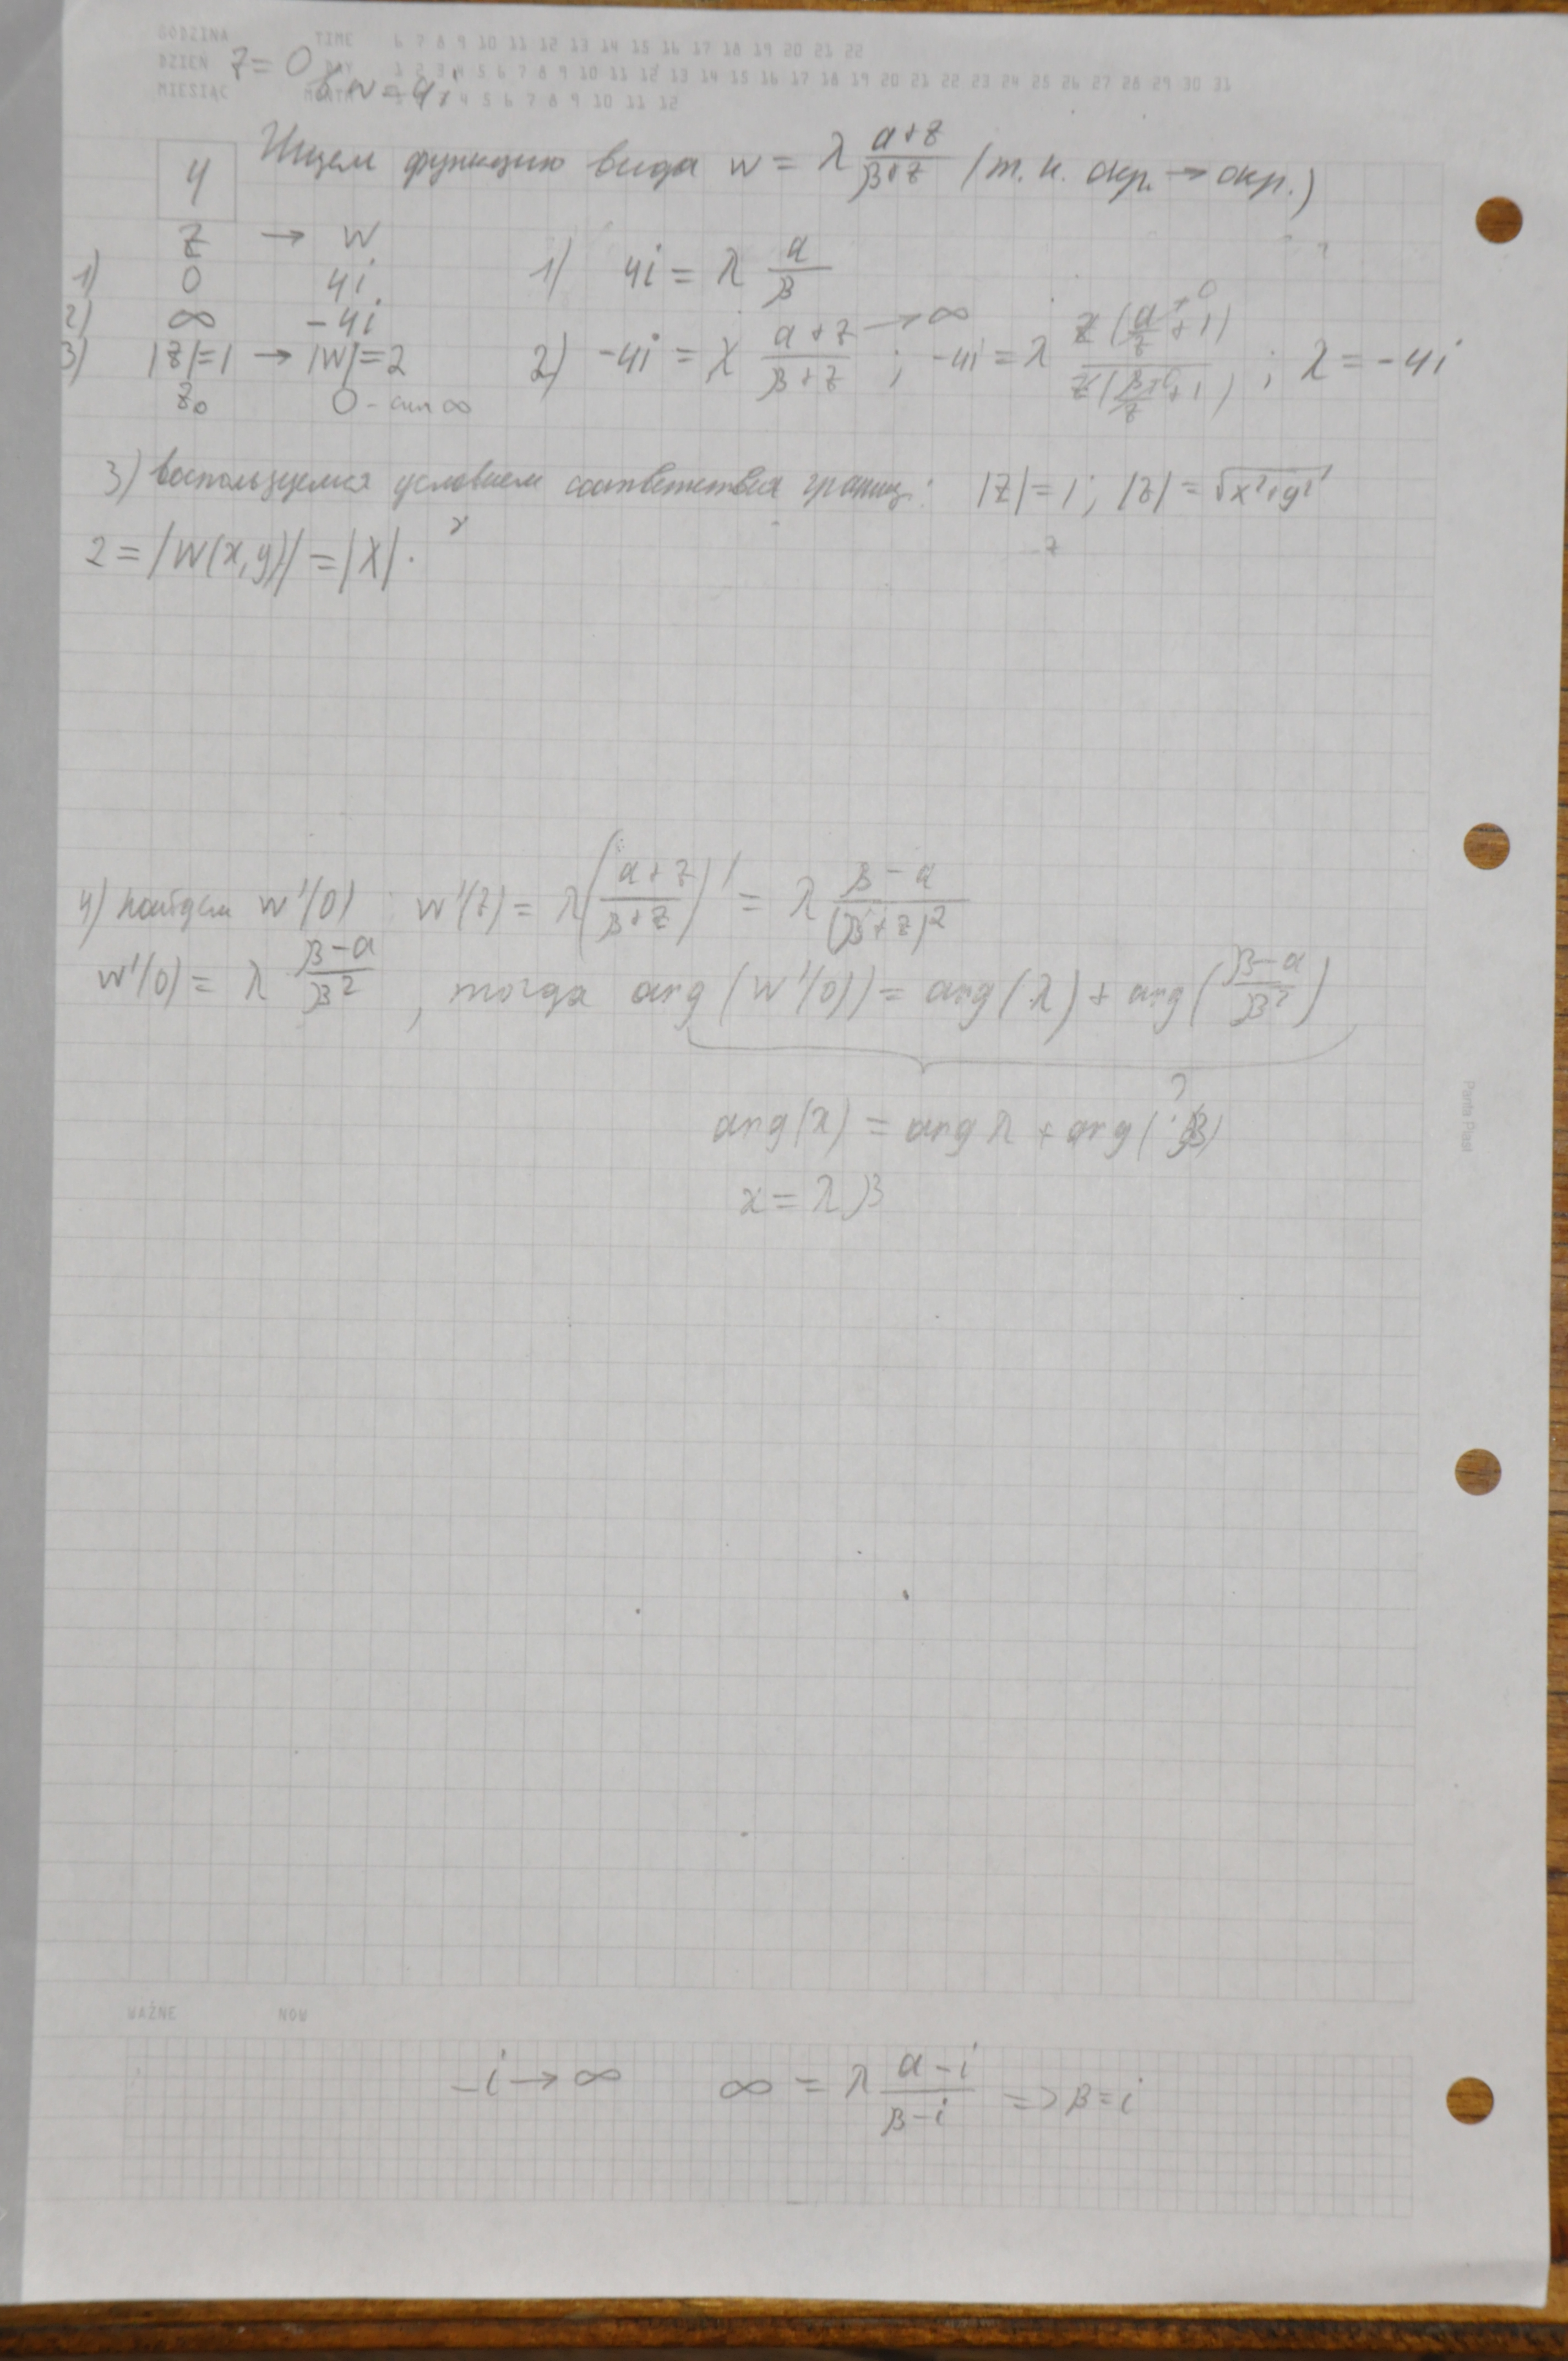 GODZINA TIME 6 7 8 9 10 11 12 13 14 15 16 17 18 19 20 21 22
DZIEŃ DAY 1 2 3 4 5 6 7 8 9 10 11 12 13 14 15 16 17 18 19 20 21 22 23 24 25 26 27 28 29 30 31
MIESIĄC MONTH 4 5 6 7 8 9 10 11 12
z = 0
w = 4i
4 Ищем функцию вида w = λ (α+z)/(β+z) (т.к. окр. → окр.)
z → w
1) 0 4i 1) 4i = λ α/β
2) ∞ -4i
3) |z|=1 → |w|=2 2) -4i = λ (α+z)/(β+z) → ∞ ; -4i = λ z(α/z + 1)/z(β/z + 1) ; λ = -4i
z₀ 0 - ∞
3) воспользуемся условием соответствия границ: |z| = 1; |z| = √(x²+y²)
2 = |w(x,y)| = |λ| ·
4) найдем w'(0) w'(z) = λ((α+z)/(β+z))' = λ (β-α)/(β+z)²
w'(0) = λ (β-α)/β² , тогда arg(w'(0)) = arg(λ) + arg((β-α)/β²)
?
arg(x) = arg λ + arg(β)
x = λβ
Panta Plast
WAŻNE NOW
-i → ∞ ∞ = λ (α-i)/(β-i) => β = i